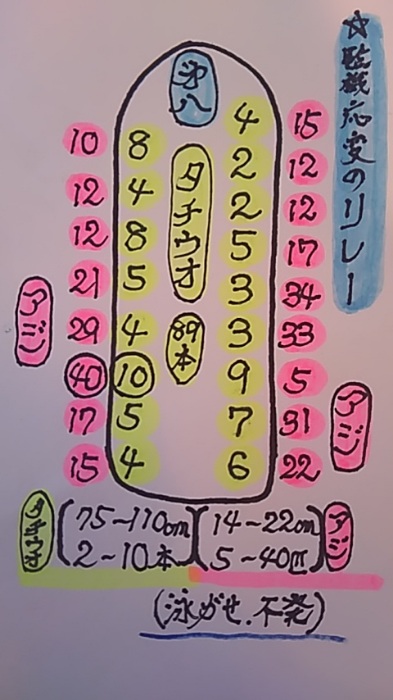 ☆臨機応変のリレー
第八
タチウオ
89本
アジ
10 8 4 15
12 4 2 12
12 8 2 12
21 5 5 17
29 4 3 34
40 10 3 33
17 5 9 5
15 4 7 31
6 22
アジ
タチウオ
75~110cm
2~10本
14~22cm
5~40匹
アジ
(泳がせ、不発)